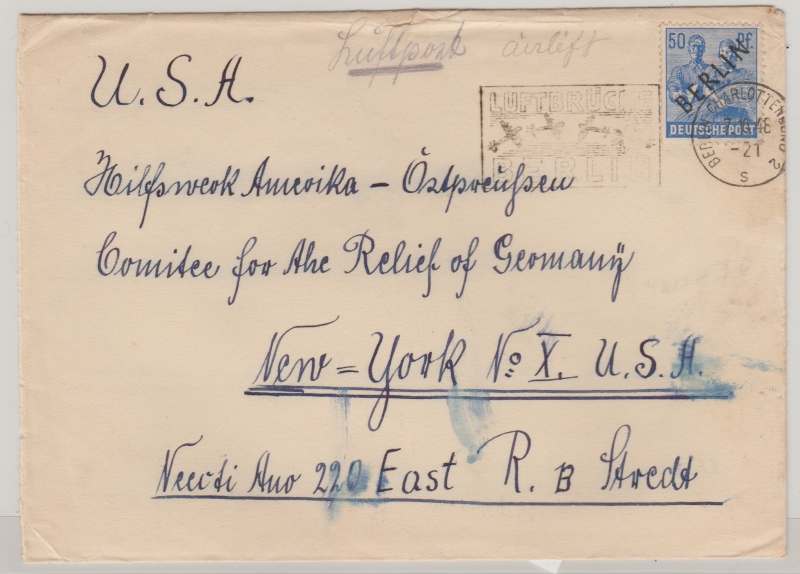 Luftpost airlift
50 Pf.
BERLIN
DEUTSCHE POST
U.S.A.
LUFTBRÜCKE
BERLIN
BERLIN-CHARLOTTENBURG 2
48
-21
S
Hilfswerk Amerika - Ostpreußen
Comitee for the Relief of Germanÿ
New=York No X. U.S.A.
220 East R. B Stredt